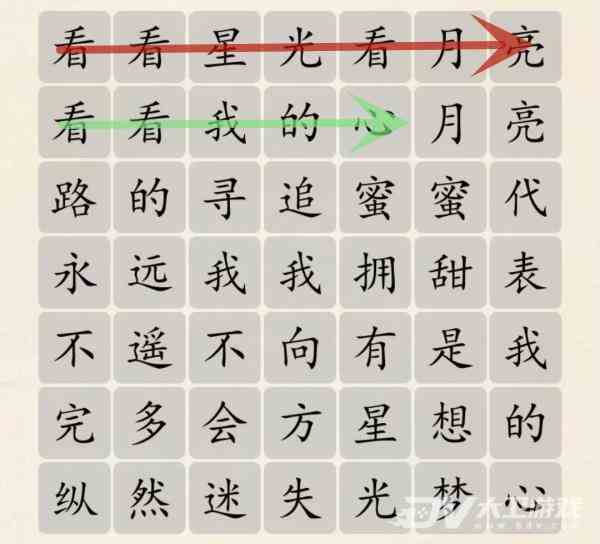 看看星光看月亮
看看我的心月亮
路的寻追蜜蜜代
永远我我拥甜表
不遥不向有是我
完多会方星想的
纵然迷失光梦心
大卫游戏
www.bdv.com